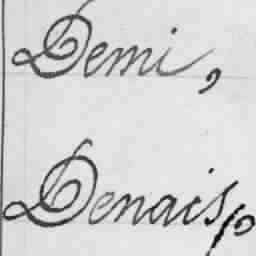 Demi,
Denais,